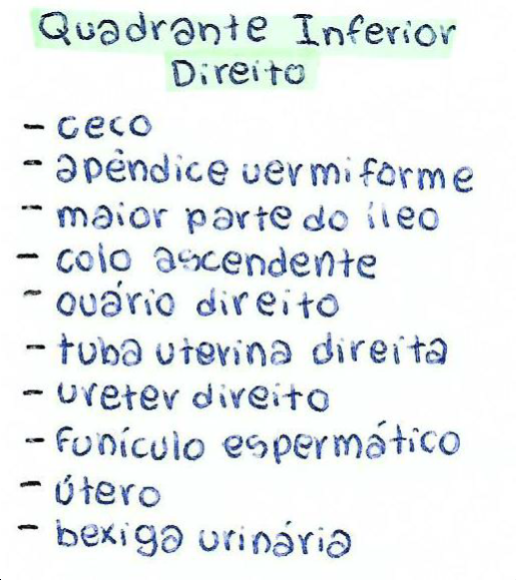 Quadrante Inferior
Direito
- ceco
- apêndice vermiforme
- maior parte do íleo
- colo ascendente
- ovário direito
- tuba uterina direita
- ureter direito
- funículo espermático
- útero
- bexiga urinária